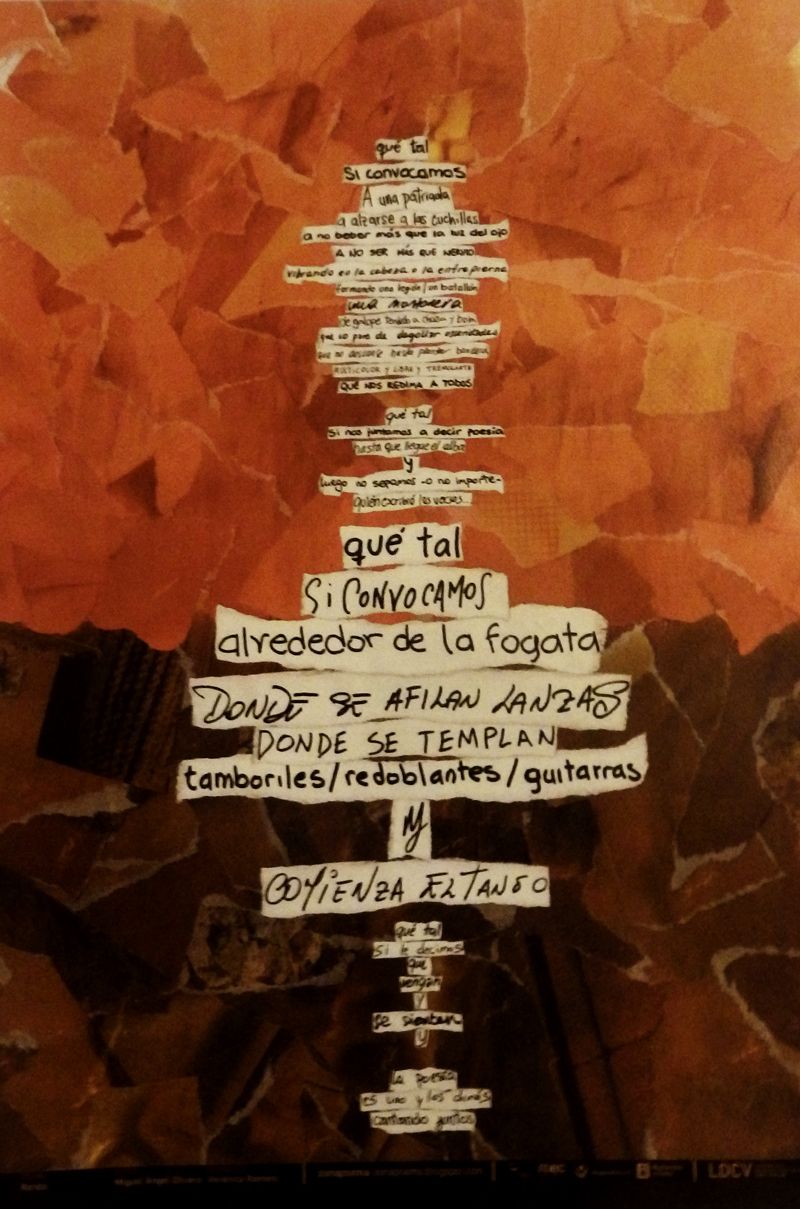 qué tal
Si convocamos
A una patriada
a alzarse a las cuchillas
a no beber más que la luz del ojo
A NO SER MÁS QUE NERVIO
vibrando en la cabeza o la entrepierna
formando una legión/un batallón
una montonera
de galope tendido a chuza y bola
que no pare de degollar oscuridades
que no descanse hasta plantar bandera
MULTICOLOR Y LIBRE Y TREMOLANTE
QUE NOS REDIMA A TODOS
qué tal
Si nos juntamos a decir poesía
hasta que llegue el alba
y
luego no sepamos -o no importe-
quién escribió los versos...
qué tal
Si CONVOCAMOS
alrededor de la fogata
DONDE SE AFILAN LANZAS
DONDE SE TEMPLAN
tamboriles/redoblantes/guitarras
y
COMiENZA EL TANGO
qué tal
Si le decimos
que
vengan
y
se sientan
y
la poesía
es uno y los demás
cantando juntos
Miguel Ángel Olivera Verónica Romero
mec
LDCV